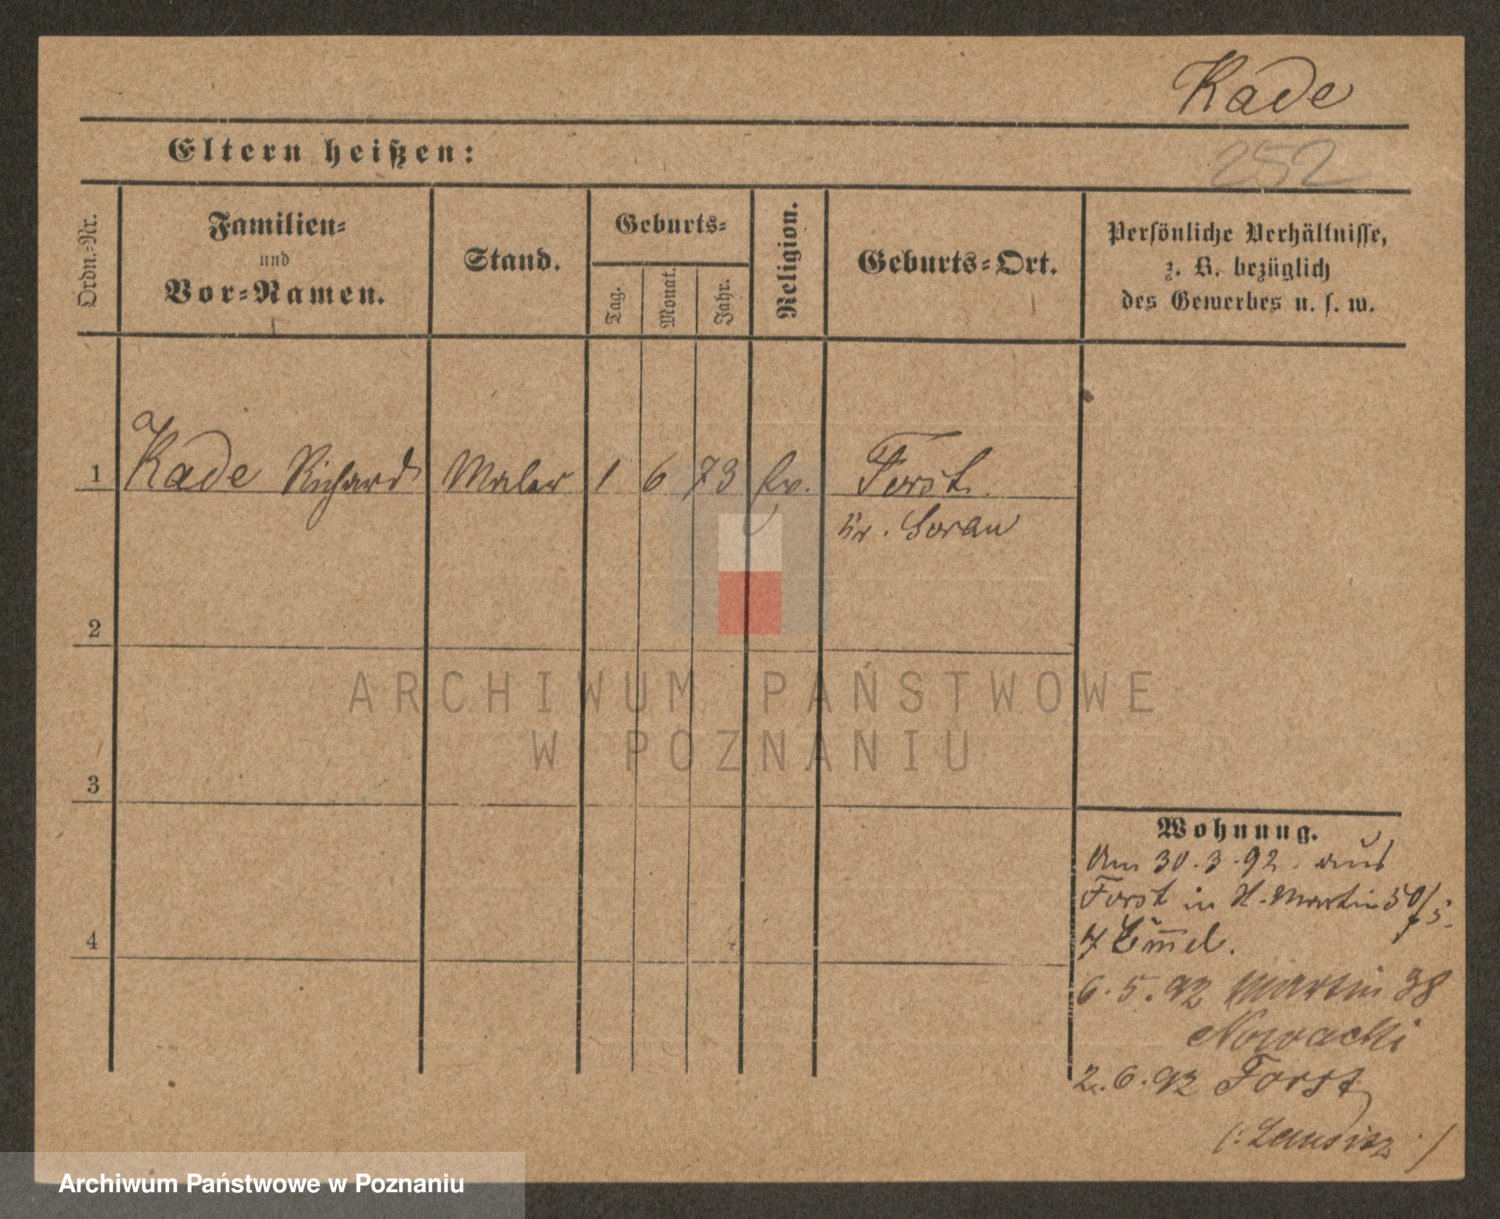 Kade
Eltern heißen:
252
Ordn.-Nr.
Familien-
und
Vor-Namen.
Stand.
Geburts-
Tag.
Monat.
Jahr.
Religion.
Geburts-Ort.
Persönliche Verhältnisse,
z. B. bezüglich
des Gewerbes u. s. w.
1 Kade Richard Maler 1 6 73 Ev. Forst.
Kr. Sorau
2
3
4
ARCHIWUM PAŃSTWOWE
W POZNANIU
Wohnung.
Am 30.3.92. aus
Forst in St. Martin 50/5.
6.5.92 Martin 38
Nowacki
2.6.92 Forst
(: Lausitz :)
Archiwum Państwowe w Poznaniu